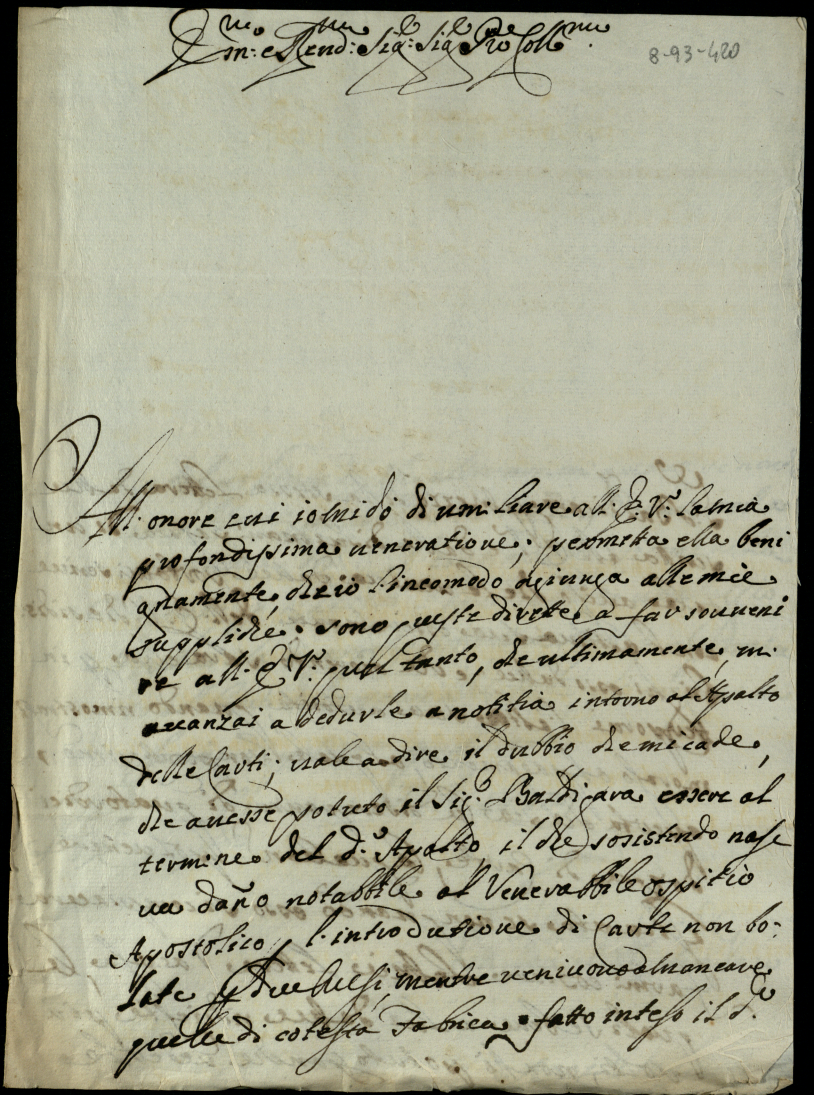 Em:mo e Rend:mo Sig:re Sig:re Pro͞n Coll:mo
8-93-420
All' onore cui io mi dò di umiliare all' E. V. la mia
profondissima veneratione, permetta ella beni
gnamente, che io l'incomodo agiunga alle mie
suppliche. sono queste dirette a far souveni
re all' E. V. quel tanto, che ultimamente, mi
avanzai a dedurle a notitia intorno al Apalto
delle Carti; vale a dire il dubbio che mi cade,
che avesse potuto il Sig.e Baldigara essere al
termine del d.o Apalto, il che sosistendo nasce
va dañno notabbile al Venerabbile ospitio
Apostolico, l'introdutione di Carte non bo:
late p due Mesi, mentre venivono a mancare
quelle di cotesta Fabrica. fatto inteso il d.o